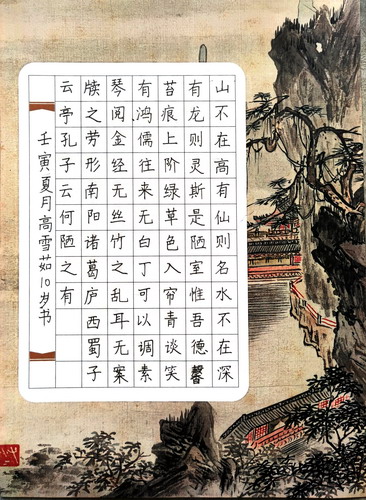 山不在高有仙则名水不在深
有龙则灵斯是陋室惟吾德馨
苔痕上阶绿草色入帘青谈笑
有鸿儒往来无白丁可以调素
琴阅金经无丝竹之乱耳无案
牍之劳形南阳诸葛庐西蜀子
云亭孔子云何陋之有
壬寅夏月高雪茹10岁书